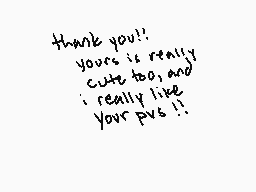 thank you!!
yours is really
cute too, and
i really like
your pvs !!